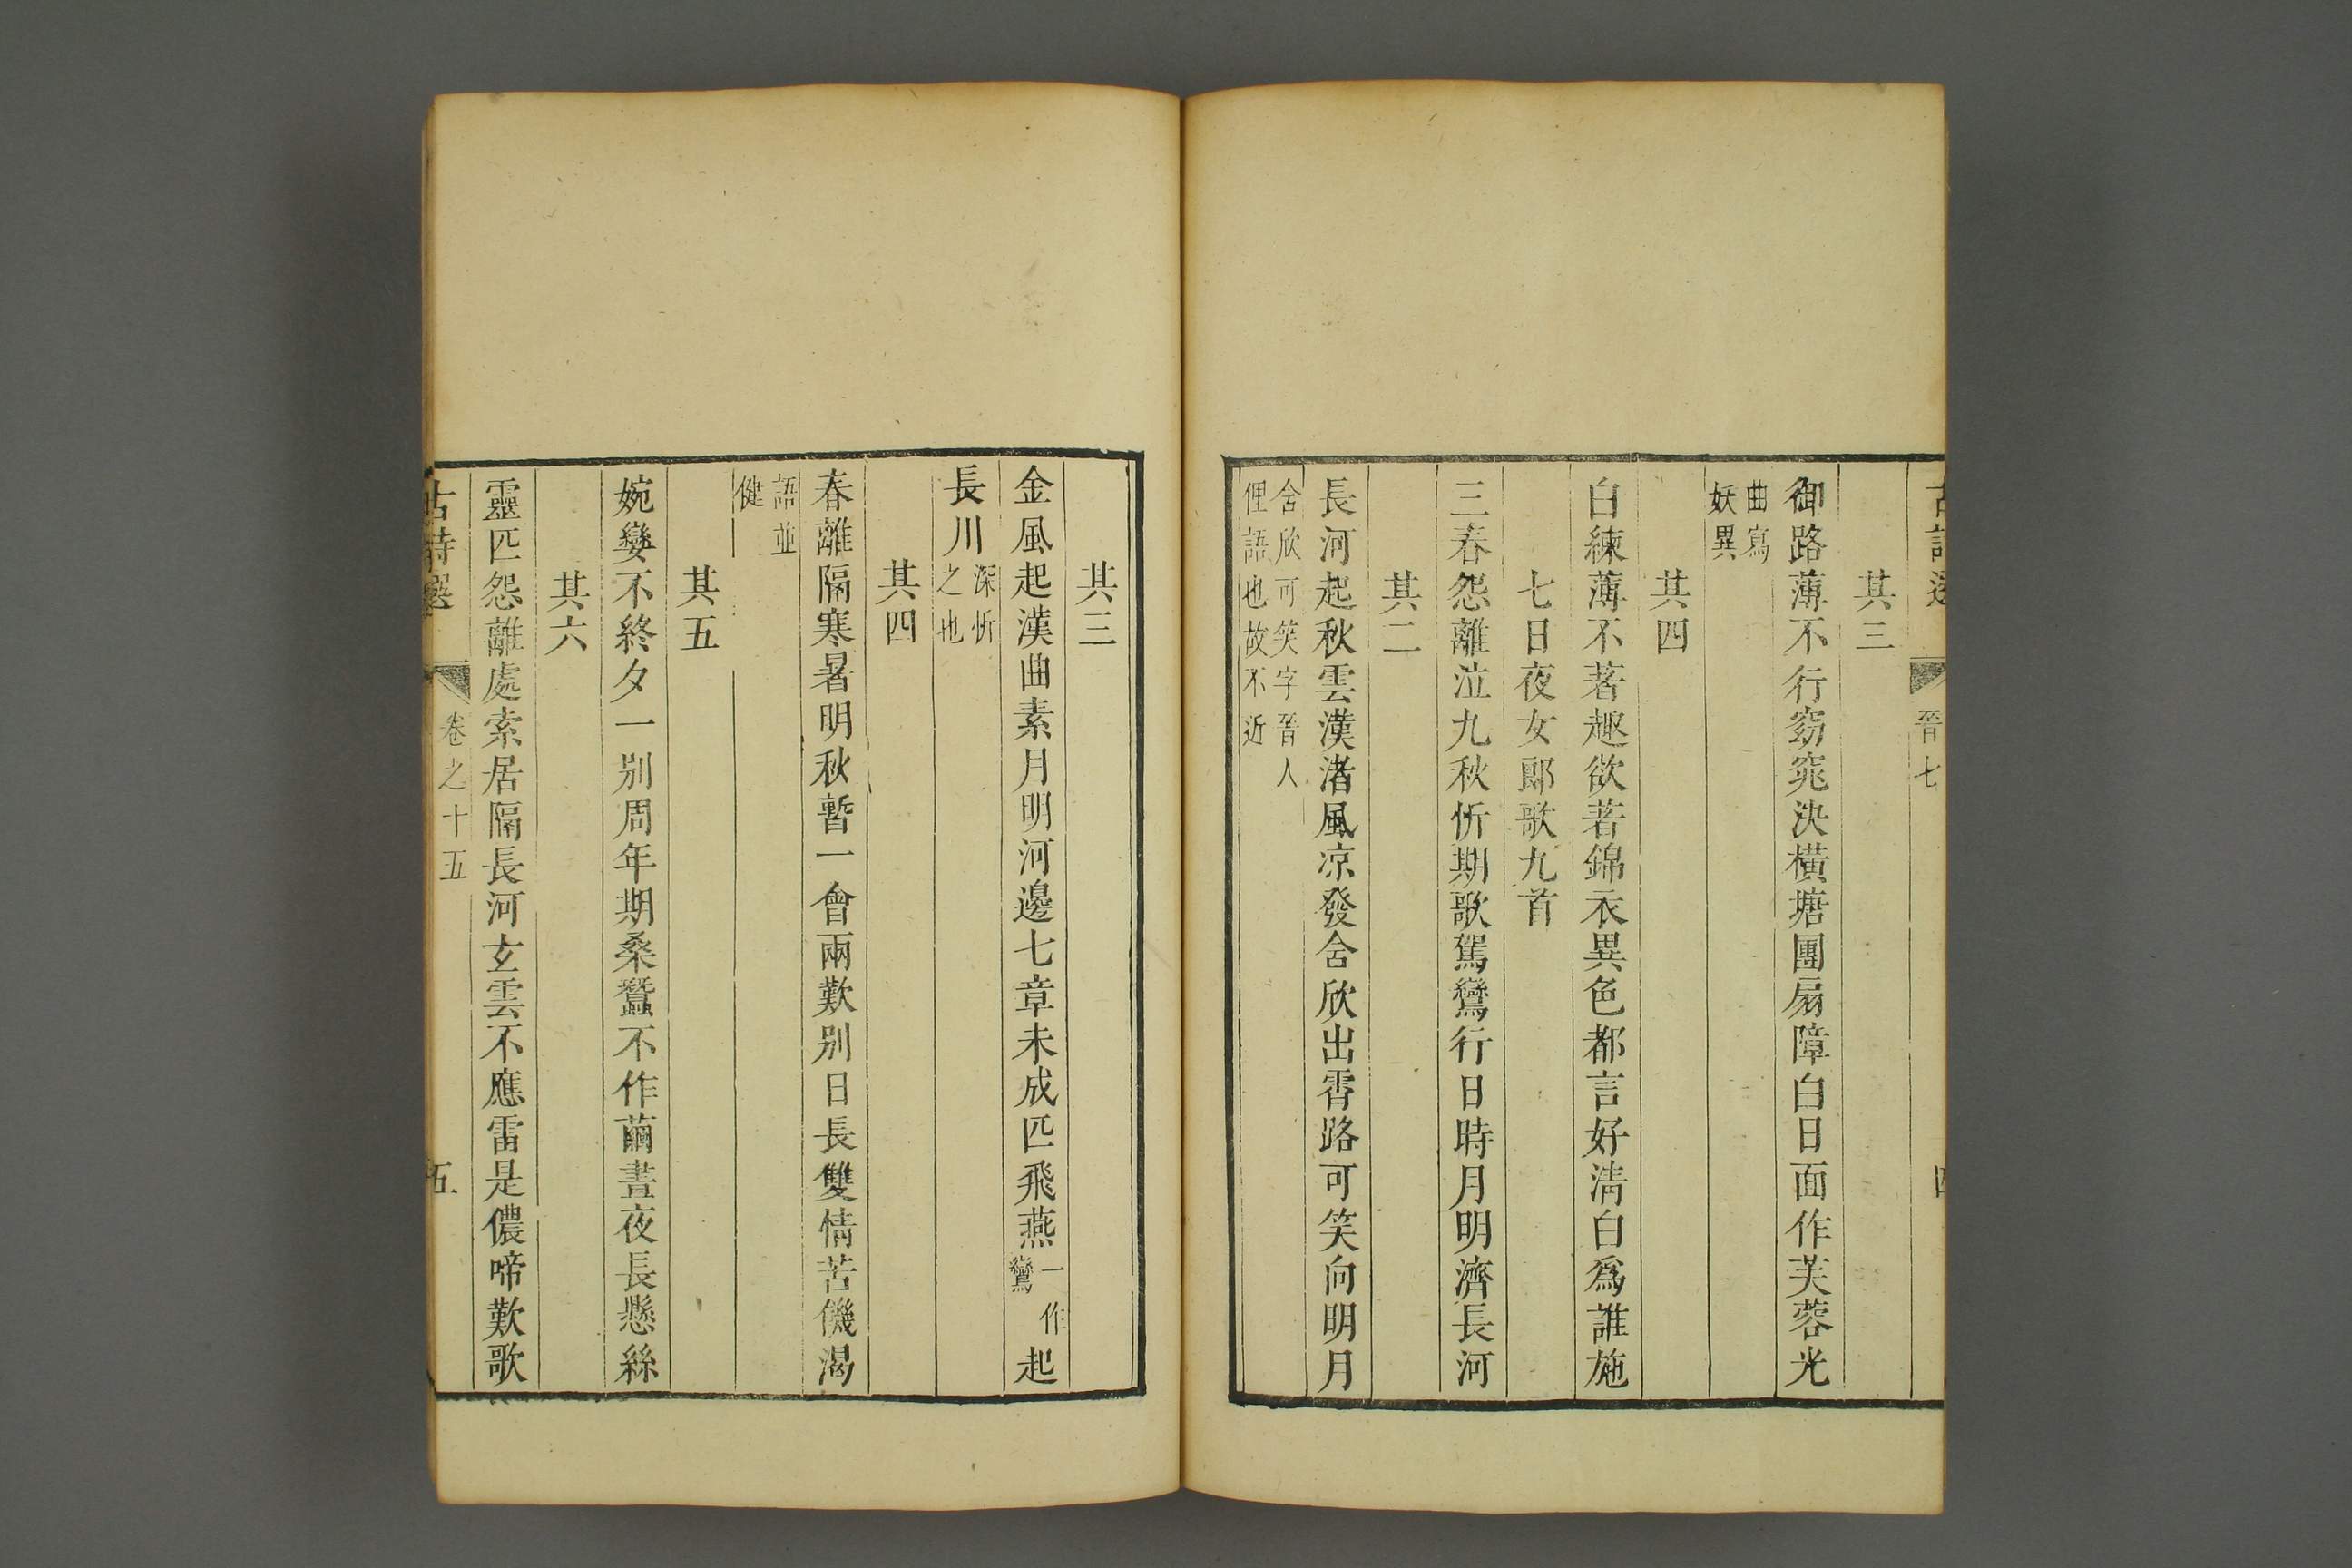 古詩選 晉七 四
其三
御路薄不行窈窕決橫塘團扇障白日面作芙蓉光
曲寫
妖異
其四
白練薄不著趣欲著錦衣異色都言好淸白爲誰施
七日夜女郎歌九首
三春怨離泣九秋忻期歌駕鸞行日時月明濟長河
其二
長河起秋雲漢渚風凉發含欣出霄路可笑向明月
含欣可笑字晉人
俚語也故不近
其三
金風起漢曲素月明河邊七章未成匹飛燕一作鸞起
長川深忻之也
其四
春離隔寒暑明秋暫一會兩歎别日長雙情苦饑渴
語並
健
其五
婉孌不終夕一别周年期桑蠶不作繭晝夜長懸絲
其六
靈匹怨離處索居隔長河玄雲不應雷是儂啼歎歌
古詩選 卷之十五 五